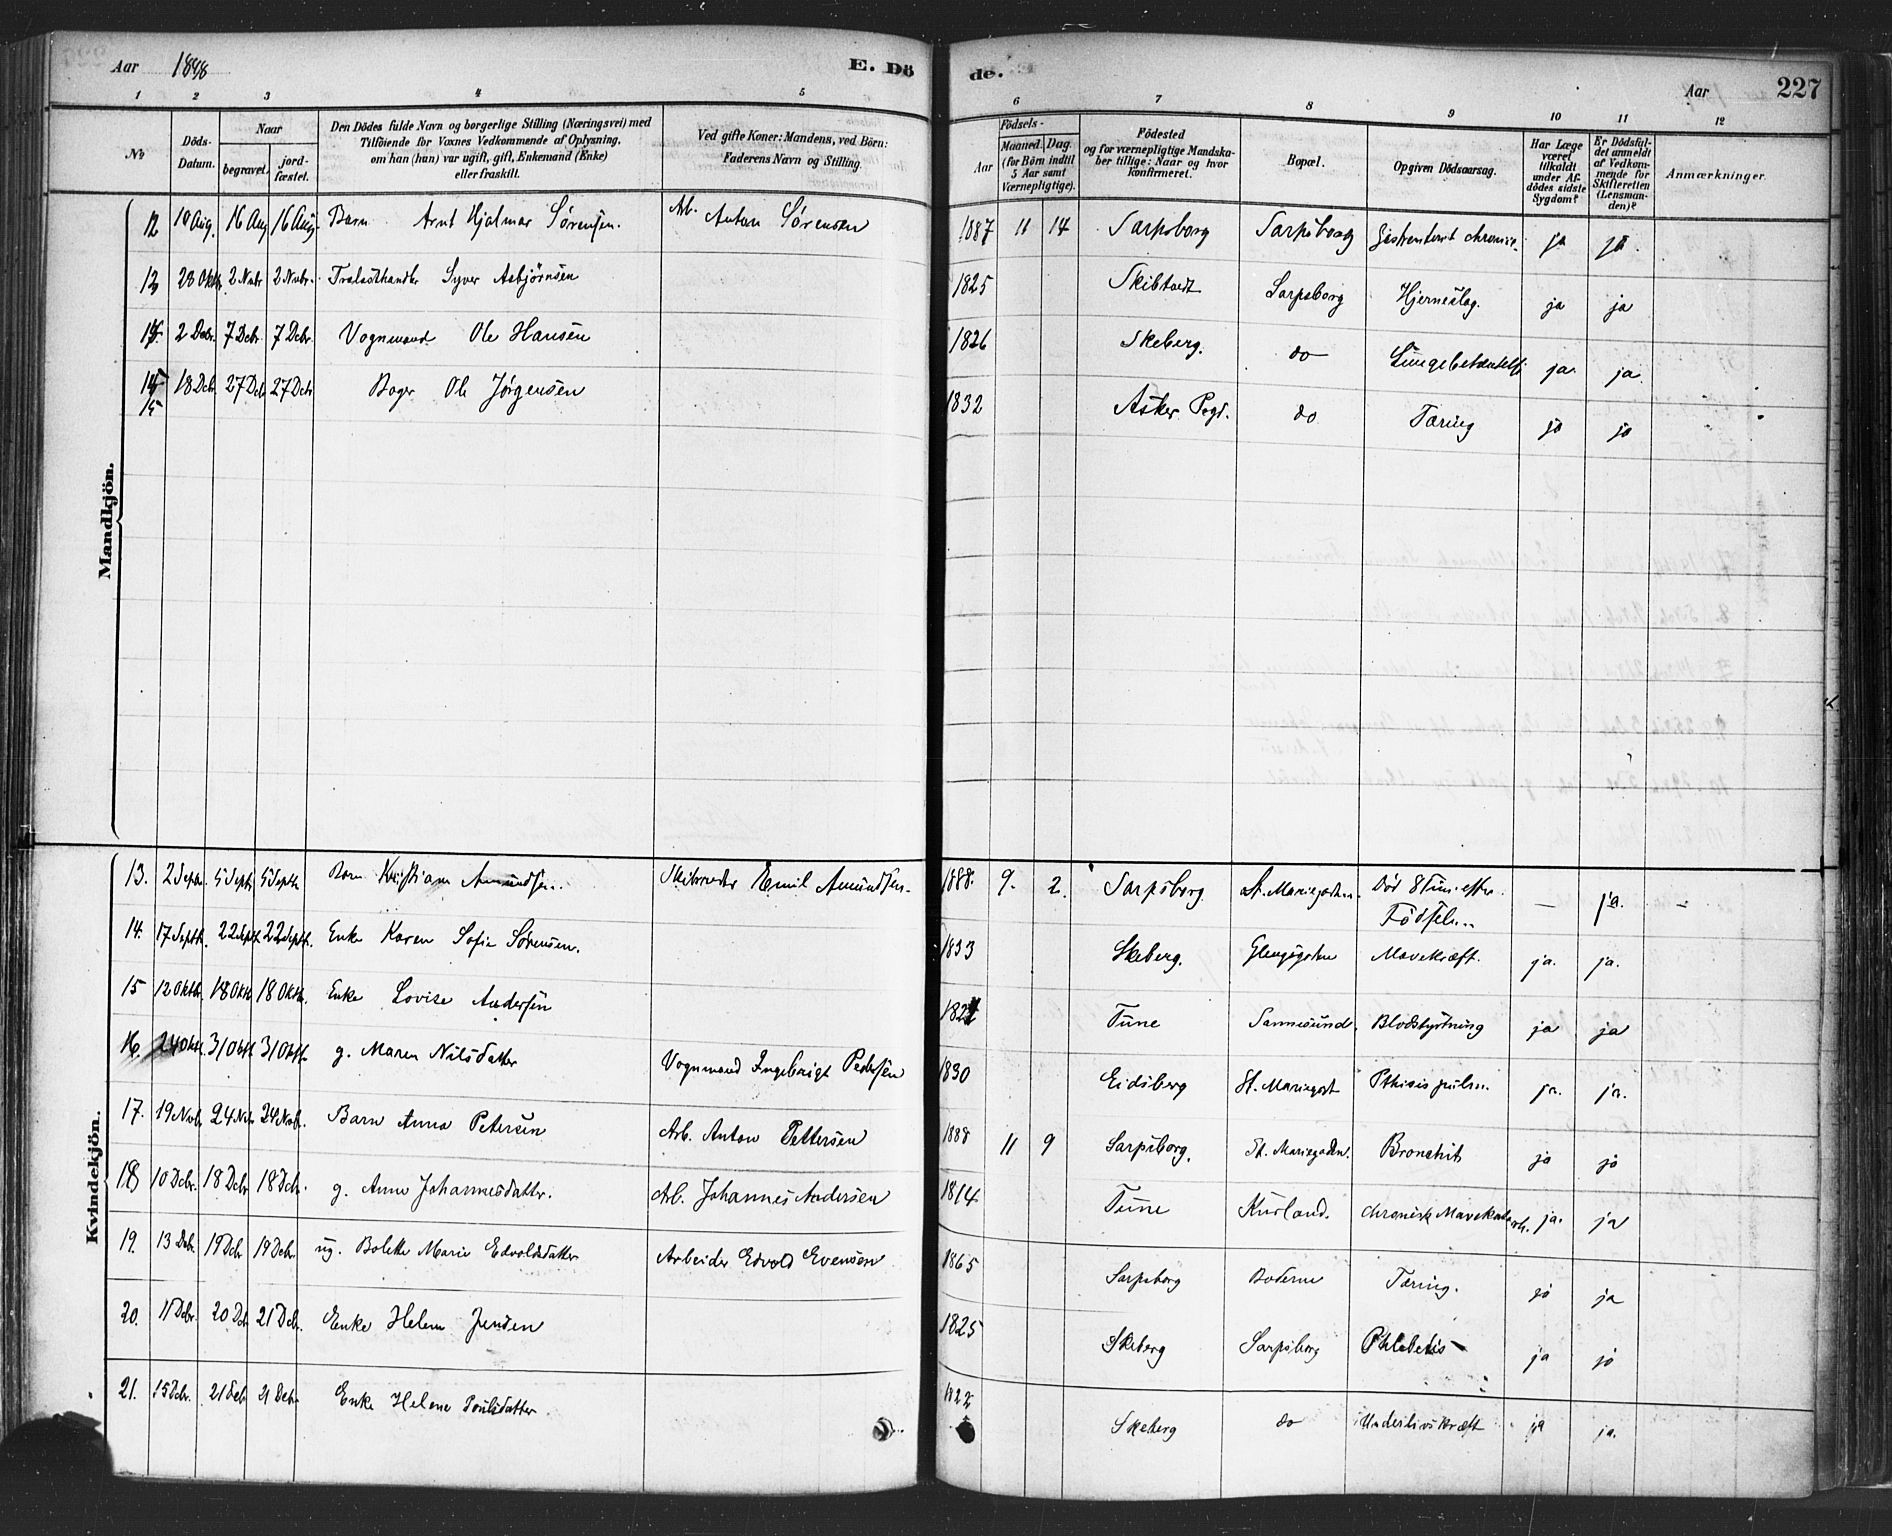 Aar 1888 E. Dö de. Aar 227
1 2 3 4 5 6 7 8 9 10 11 12
No Döds-Datum. Naar begravet. jord-fæstet. Den Dödes fulde Navn og borgerlige Stilling (Næringsvei) med Tilföiende for Voxnes Vedkommende af Oplysning, om han (hun) var ugift, gift, Enkemand (Enke) eller fraskilt. Ved gifte Koner: Mandens, ved Börn: Faderens Navn og Stilling. Födsels- Aar Maaned. Dag. (for Börn indtil 5 Aar samt Værnepligtige). Födested og for værnepligtige Mandskaber tillige: Naar og hvor konfirmeret. Bopæl. Opgiven Dödsaarsag. Har Læge været tilkaldt under Afdödes sidste Sygdom? Er Dödsfaldet anmeldt af Vedkommende for Skifteretten (Lensmanden)? Anmærkninger.
Mandkjön.
12 10 Aug. 16 Aug 16 Aug. Barn Arnt Hjalmar Sørensen. Arb. Anton Sørensen 1887 11 14 Sarpsborg Sarpsborg ja ja.
13 28 Oktb. 2 Nvbr 2 Nvbr. Syver Asbjørnsen 1825 Sarpsborg Hjerneslag. ja ja
14 2 Decbr. 7 Dcbr. 7 Dcbr. Vognmand Ole Hansen 1826 Skeberg. do Lungebetændelse ja. ja.
15 18 Dcb. 27 Dcb 27 Dcb Bager Ole Jørgensen 1832 Asker Pgd. do Tæring ja ja
15
Kvindekjön.
13. 2 Septb. 5 Septb 5 Septb Barn Kristiane Amundsen. Emil Amundsen. 1888. 9. 2. Sarpsborg St. Mariegaden. Død 8 Tim. efter Fødselen. — ja. —
14. 17 Septb. 22 Septb 22 Septb. Enke Karen Sofie Sørensen. 1833 Skeberg. Glengsgaden Mavekræft. ja. ja.
15 12 Oktb. 18 Oktb. 18 Oktb. Enke Lovise Andersen Tune Sannesund. Blodstyrtning ja ja
16. 24 Oktb. 31 Oktb 31 Oktb g. Maren Nilsdatter Vognmand Ingebrigt Pedersen 1830 Eidsberg St. Mariegad Pthisis pulm. ja. ja.
17. 19 Nvb. 24 Nvb. 24 Nvb. Barn Anna Petersen Arb. Anton Pettersen 1888 11 9 Sarpsborg. St. Mariegaden. Bronchit ja ja
18 10 Dcbr. 18 Dcbr 18 Dcb. g. Anne Johannesdatter. Arb. Johannes Andersen 1814 Tune Kurland. chronisk Mavekatarrh. ja. ja
19. 13 Dcbr. 19 Dcb 19 Dcbr. ug. Bolette Marie Edvoldsdatter Arbeider Edvold Evensen 1865 Sarpsborg Boderne Tæring. ja ja
20. 11 Dcbr. 20 Dcb 21 Dcb. Enke Helene Jensen 1825 Skeberg Sarpsborg Phlebetis ja ja
21. 15 Dcbr. 21 Dcb 21 Dcbr Enke Helene Poulsdatter. 1822 Skeberg do Underlivskræft ja ja.